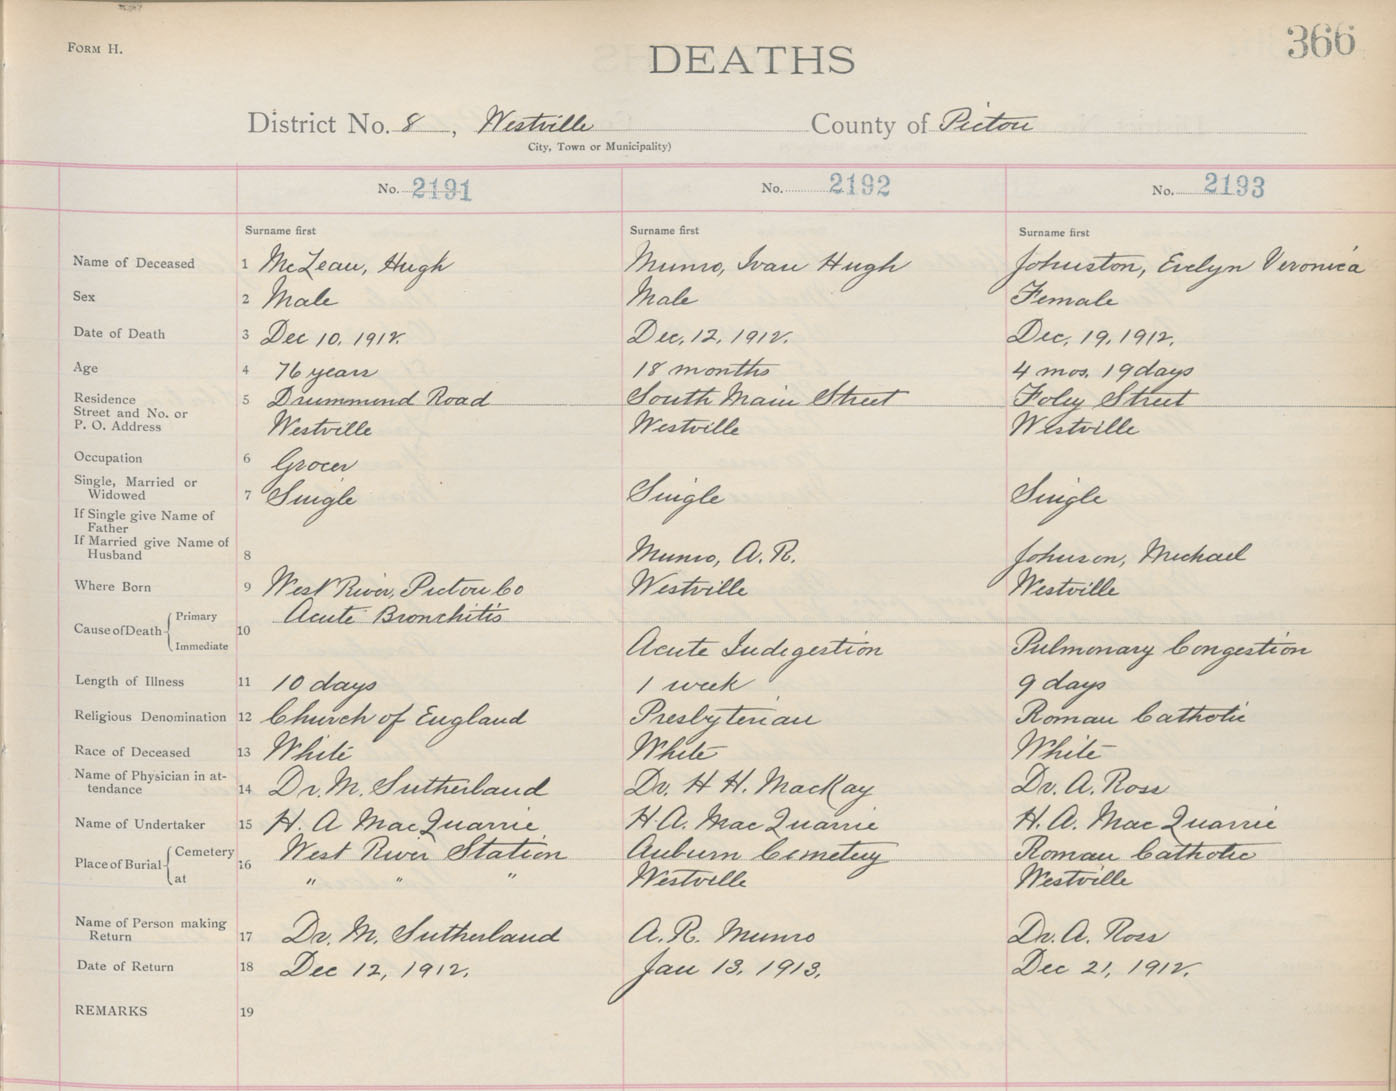 FORM H.
DEATHS
366
District No. 8, Westville County of Pictou
City, Town or Municipality)
No. 2191 No. 2192 No. 2193
Surname first Surname first Surname first
Name of Deceased 1 McLean, Hugh Munro, Ivan Hugh Johnston, Evelyn Veronica
Sex 2 Male Male Female
Date of Death 3 Dec 10, 1912. Dec, 12, 1912. Dec, 19, 1912.
Age 4 76 years 18 months 4 mos. 19 days
Residence 5 Drummond Road South Main Street Foley Street
Street and No. or
P. O. Address Westville Westville Westville
Occupation 6 Grocer
Single, Married or
Widowed 7 Single Single Single
If Single give Name of
Father
If Married give Name of
Husband 8 Munro, A. R. Johnson, Michael
Where Born 9 West River, Pictou Co Westville Westville
Cause of Death Primary 10 Acute Bronchitis
Immediate Acute Indigestion Pulmonary Congestion
Length of Illness 11 10 days 1 week 9 days
Religious Denomination 12 Church of England Presbyterian Roman Catholic
Race of Deceased 13 White White White
Name of Physician in at-
tendance 14 Dr. M. Sutherland Dr. H H. MacKay Dr. A. Ross
Name of Undertaker 15 H. A MacQuarrie H. A. MacQuarrie H. A. MacQuarrie
Place of Burial Cemetery 16 West River Station Auburn Cemetery Roman Catholic
at " " " Westville Westville
Name of Person making
Return 17 Dr. M. Sutherland A. R. Munro Dr. A. Ross
Date of Return 18 Dec 12, 1912. Jan 13, 1913. Dec 21, 1912.
REMARKS 19